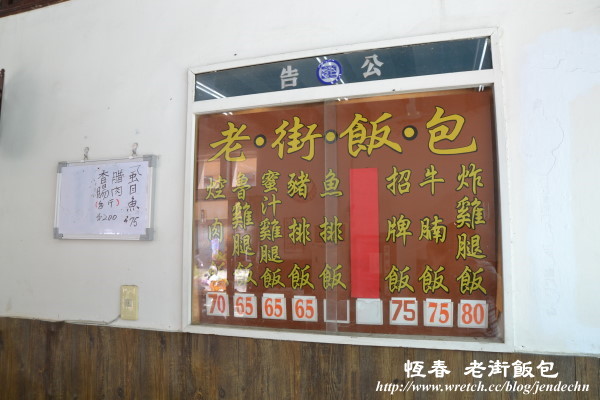 公告
老·街·飯·包
炸雞腿飯 80
牛腩飯 75
招牌飯 75
魚排飯
豬排飯 65
蜜汁雞腿飯 65
魯雞腿飯 65
爌肉 70
虱目魚 75
腊肉
香腸
(半斤)
200
恆春 老街飯包
http://www.wretch.cc/blog/jendechn